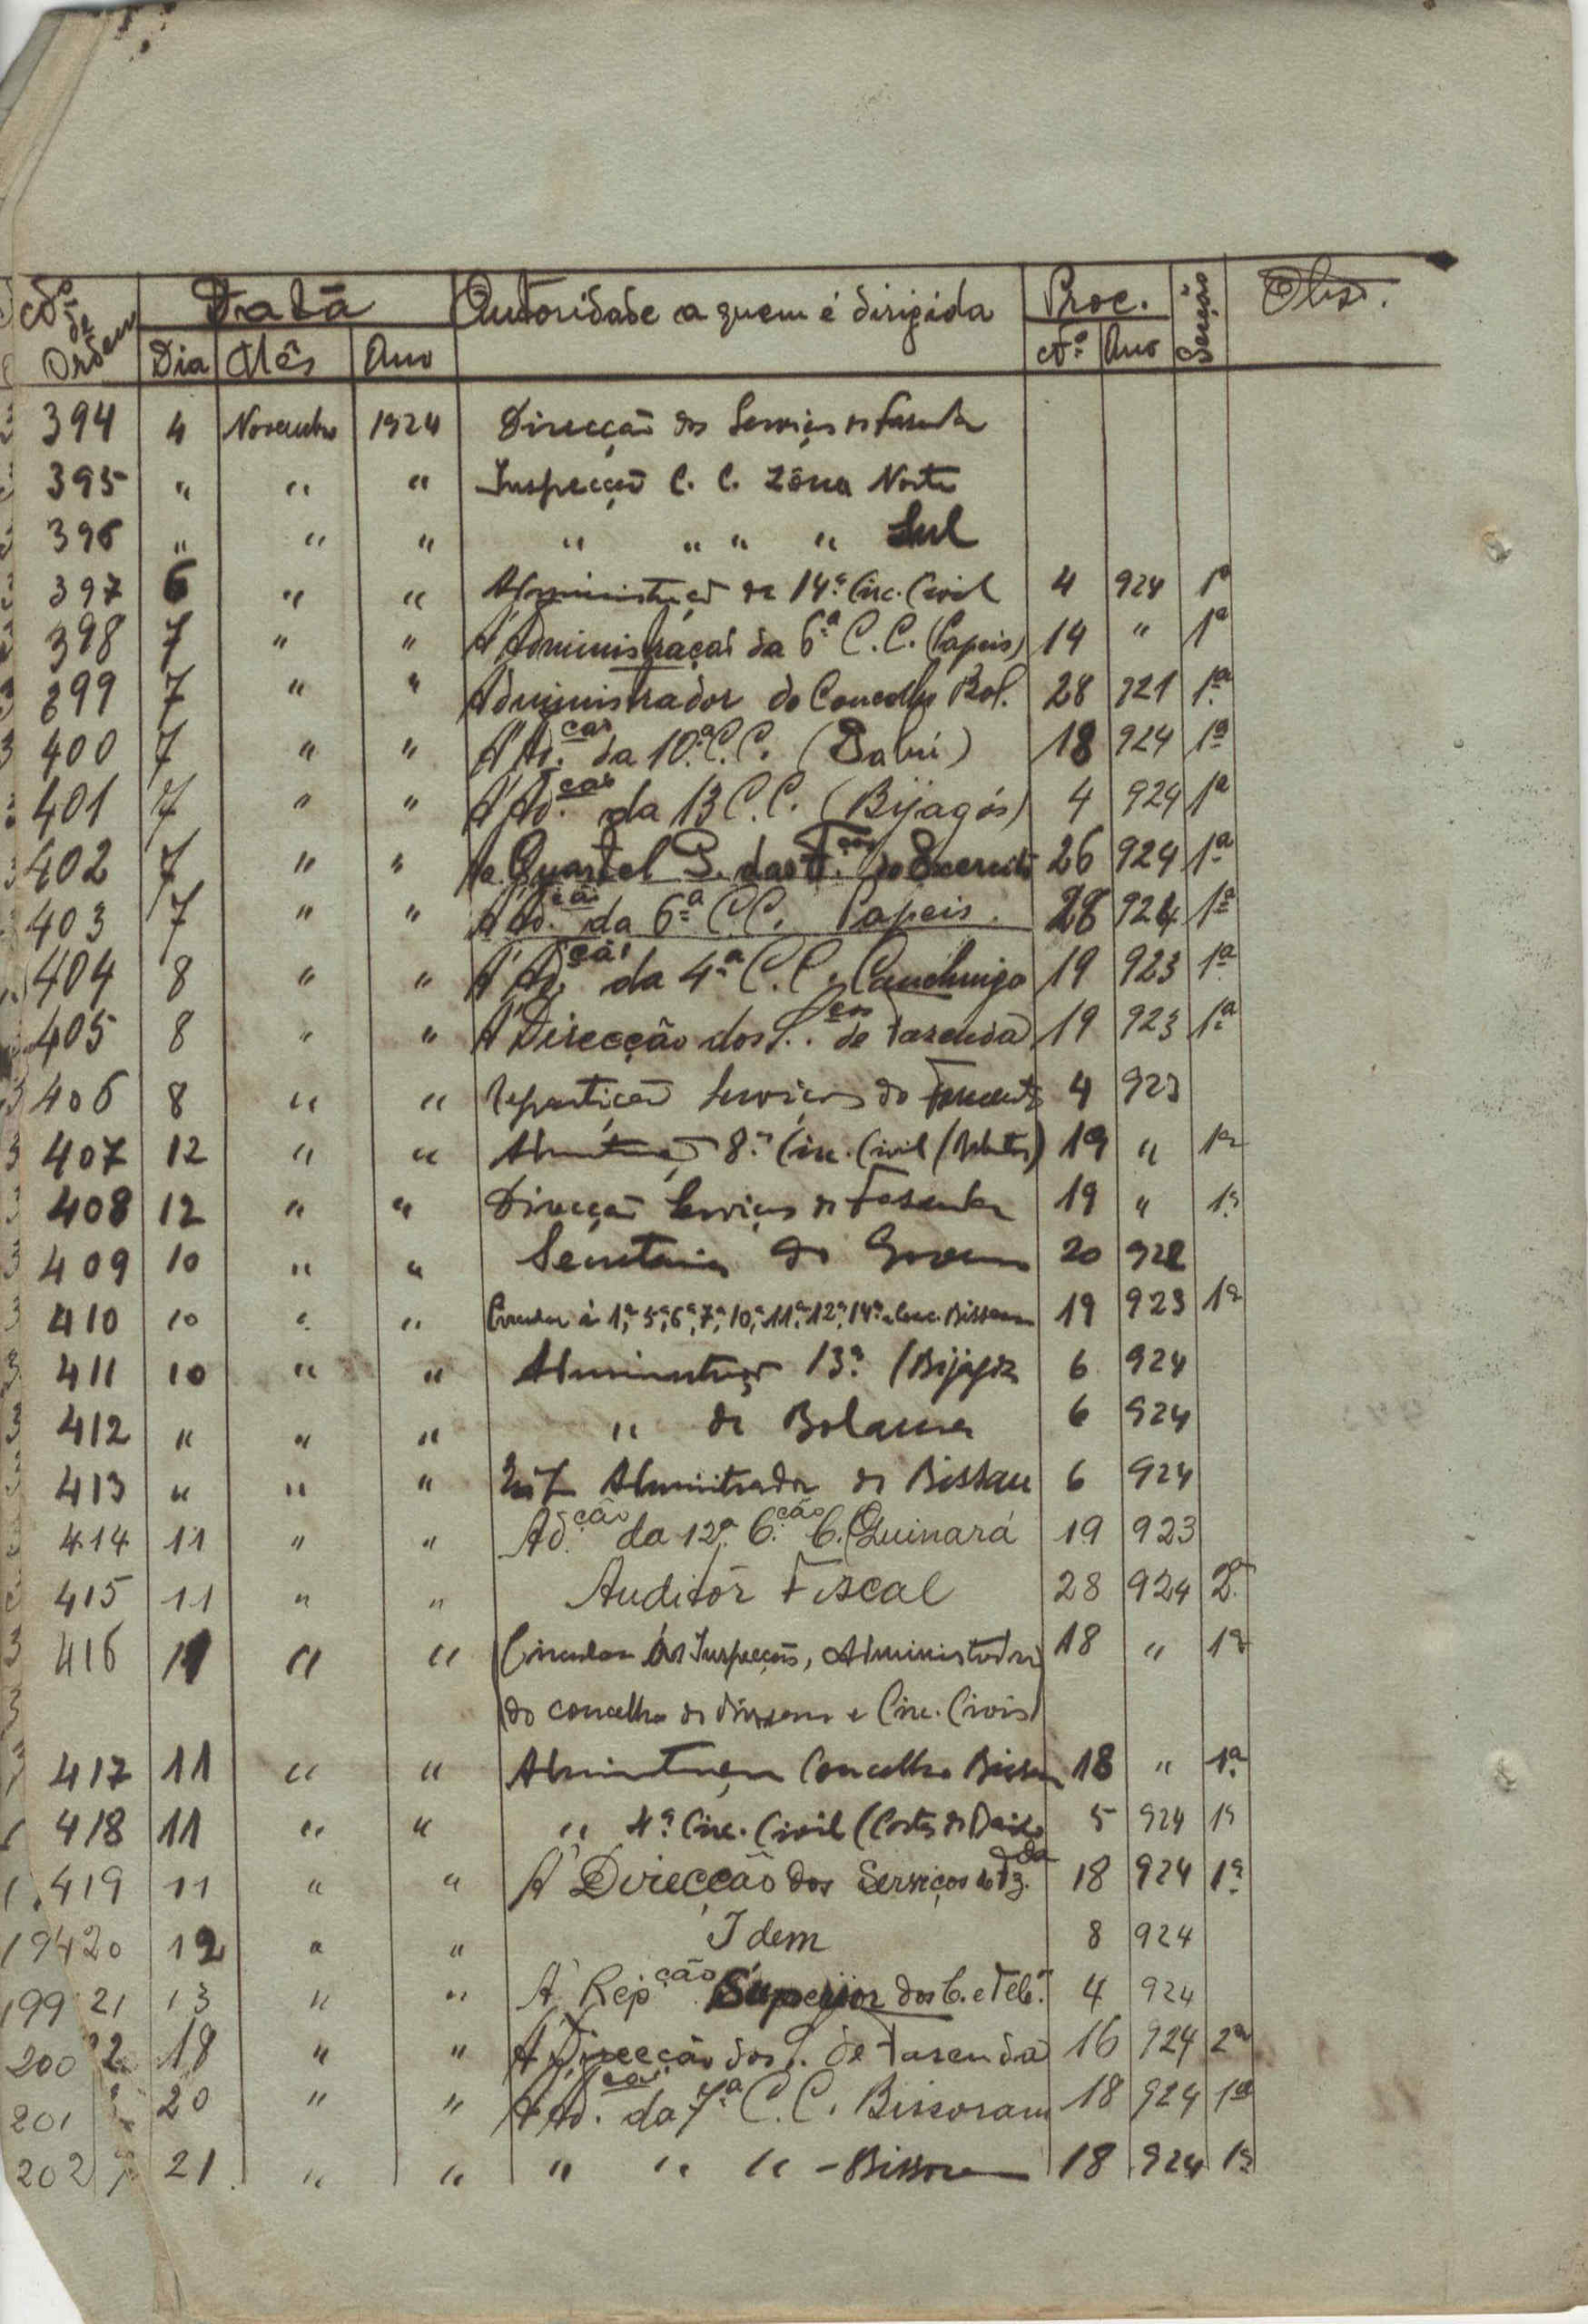 Nº de Ordem Data Autoridade a quem é dirigida Proc. Secção Obs.
Dia Mês Ano Nº Ano
394 4 Novembro 1924 Direcção dos Serviços de Fazenda
395 " " " Inspecção C. C. Zôna Norte
396 " " " " " " " Sul
397 6 " " Administração da 14ª Circ. Civil 4 924 1ª
398 7 " " Á Administração da 6ª C. C. (Papeis) 14 " 1ª
399 7 " " Administrador do Concelho Bol. 28 921 1ª
400 7 " " Á Ad.ção da 10ª C. C. ( ) 18 924 1ª
401 7 " " Á Ad.ção da 13 C. C. (Bijagós) 4 924 1ª
402 7 " " Ao Quartel G. das F.ças do Exercito 26 924 1ª
403 7 " " Á Ad.ção da 6ª C. C. Papeis. 28 924 1ª
404 8 " " Á Ad.ção da 4ª C. C. Canchungo 19 923 1ª
405 8 " " Á Direcção dos S.ços de Fazenda 19 923 1ª
406 8 " " Repartição Serviços do Fomento 4 923
407 12 " " 8ª Circ. Civil 19 " 1ª
408 12 " " Direcção Serviços de Fazenda 19 " 1ª
409 10 " " Secretaria do Governo 20 922
410 10 " " Circular á 1ª, 5ª, 6ª, 7ª, 10ª, 11ª, 12ª, 14ª e Conc. Bissau 19 923 1ª
411 10 " " Administração 13ª (Bijagós 6 924
412 " " " " de Bolama 6 924
413 " " " Administrador de Bissau 6 924
414 11 " " Ad.ção da 12ª C.ção C. (Quinará 19 923
415 11 " " Auditôr Fiscal 28 924 2ª
416 11 " " Circular ás Inspecções, Administrador 18 " 1ª
do concelho de Bissau e Circ. Civis)
417 11 " " Administração Concelho Bissau 18 " 1ª
418 11 " " " 4ª Circ. Civil (Costa de Baixo 5 924 1ª
419 11 " " Á Direcção dos Serviços de Fz.da 18 924 1ª
19 420 12 " " Idem 8 924
199 21 13 " " Á Rep.ção Superior dos C. e Tel. 4 924
200 22 18 " " Á Direcção dos S. de Fazenda 16 924 2ª
201 20 " " Á Ad.ção da 7ª C. C. Bissoram 18 924 1ª
202 21 " " " " " - Bissoram 18 924 1ª